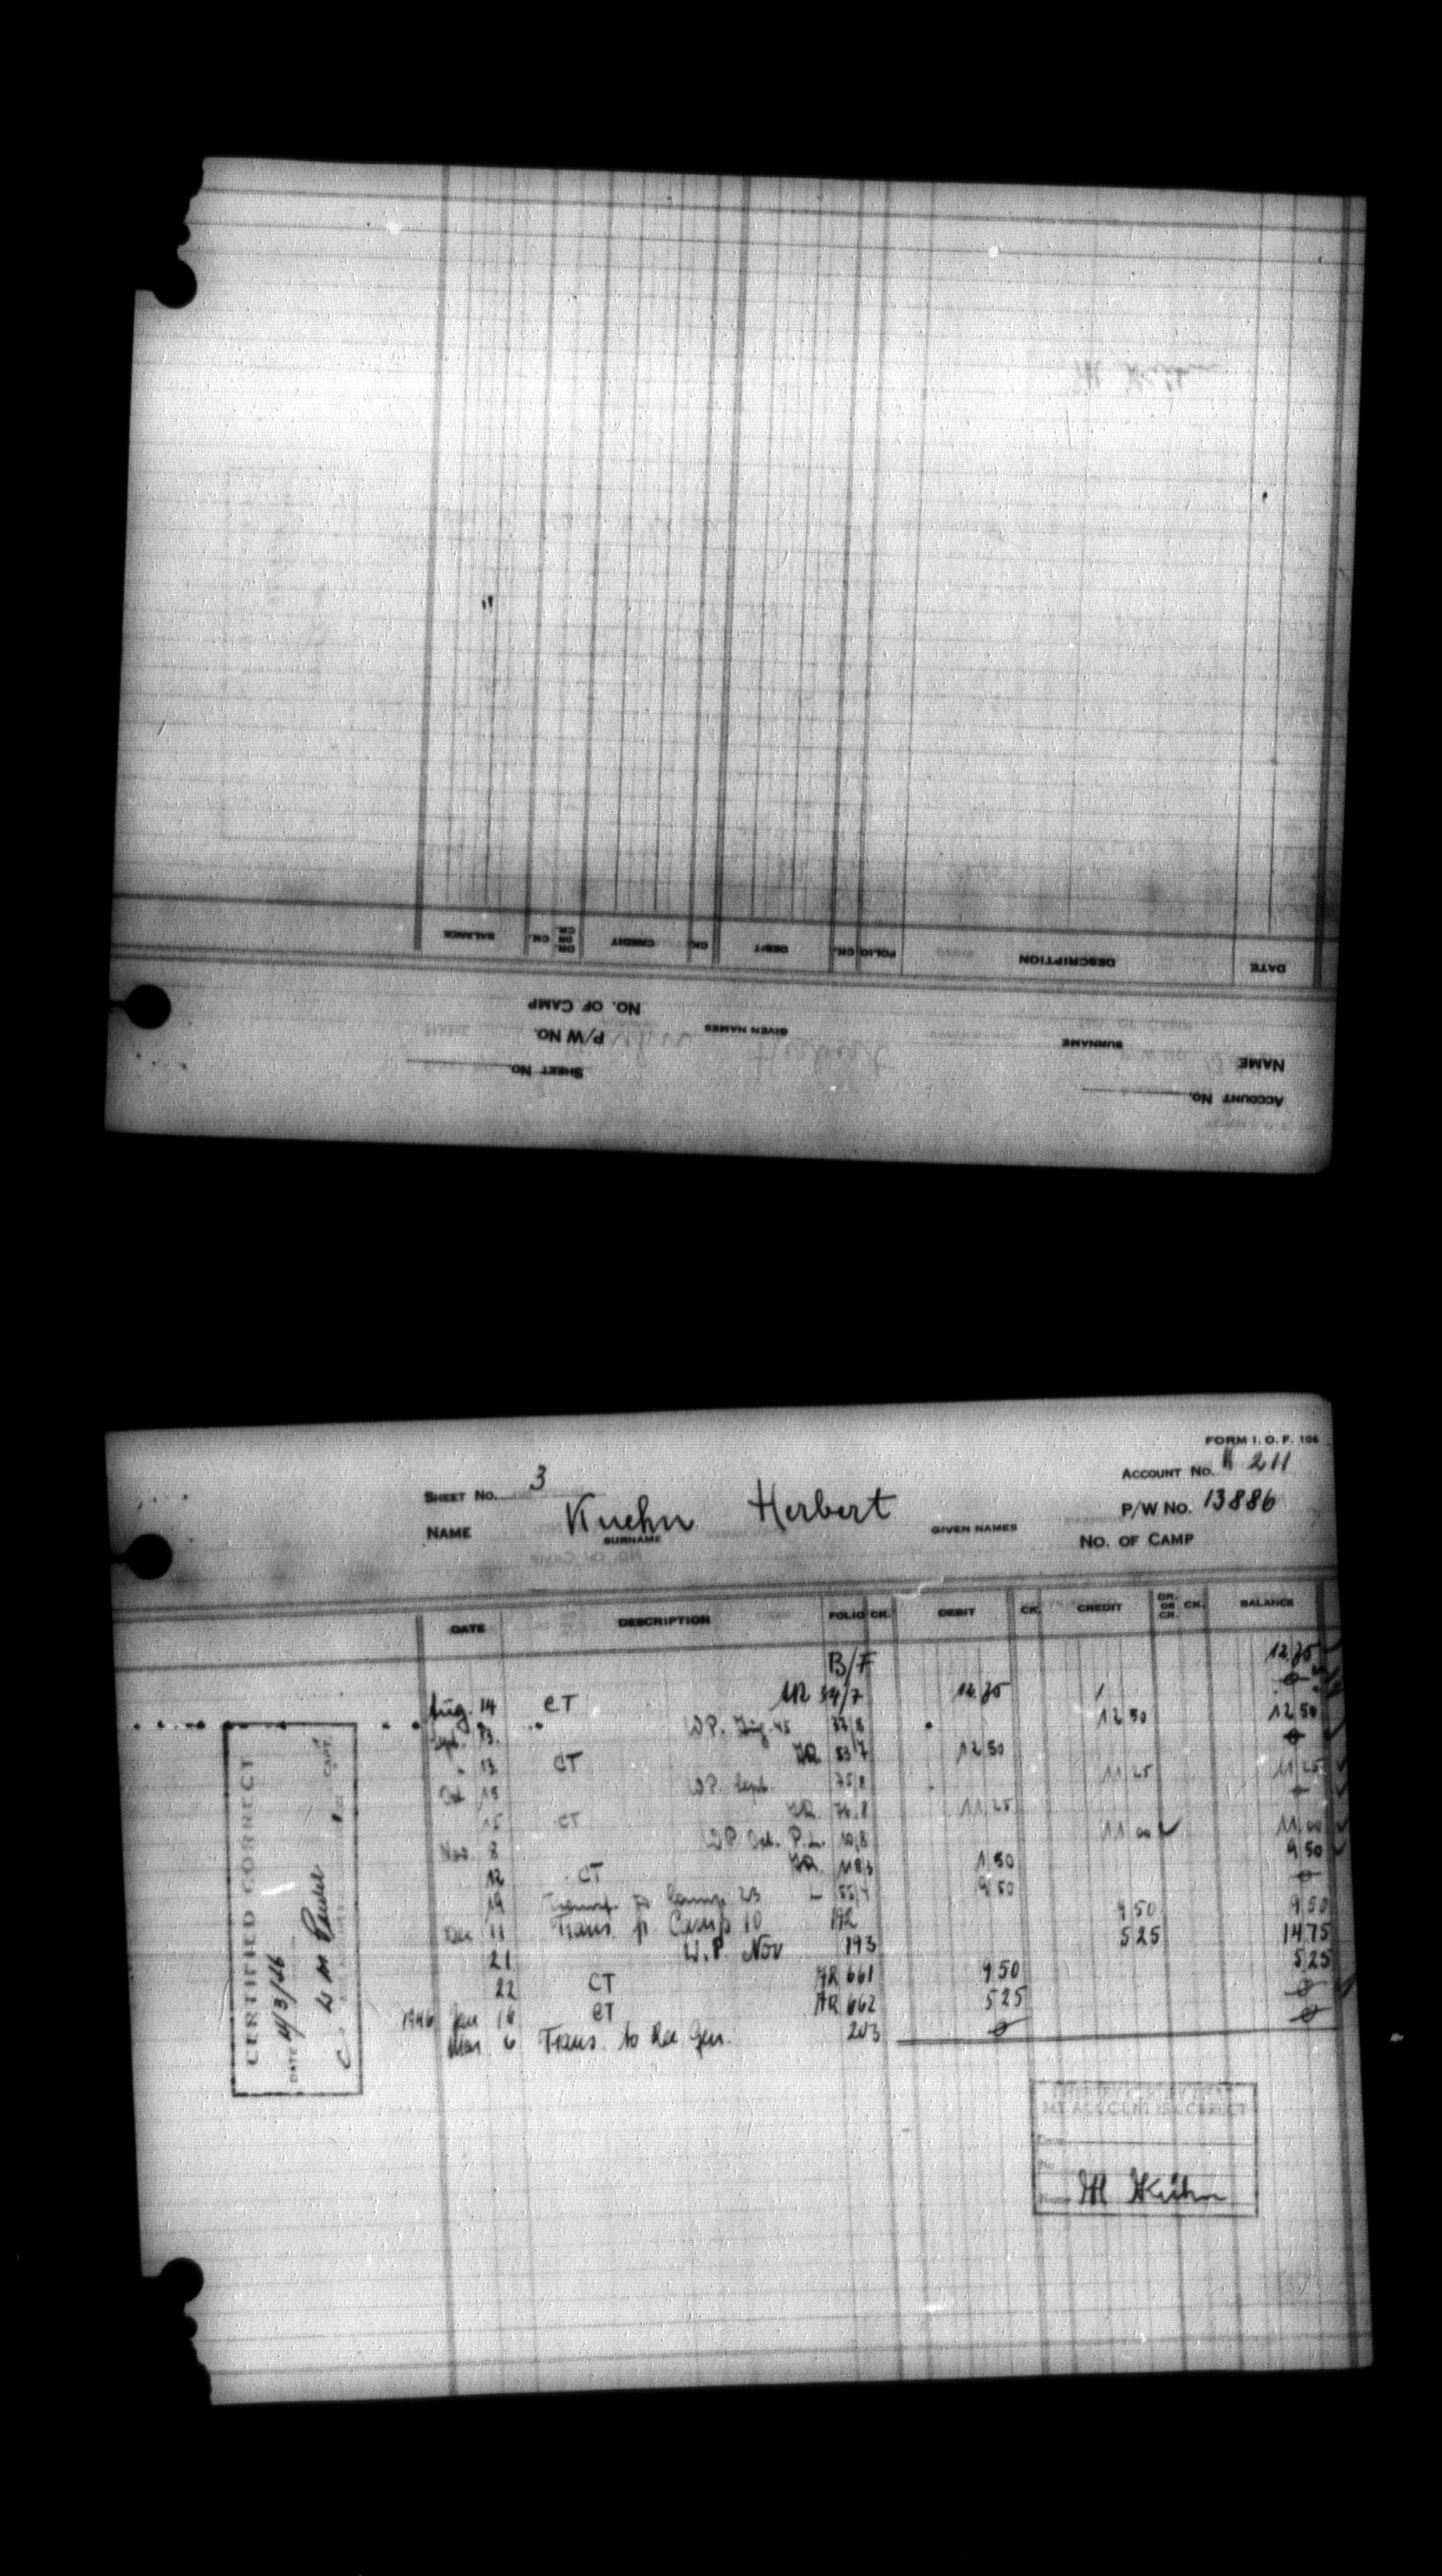 ACCOUNT No.
SHEET No.
NAME
SURNAME
GIVEN NAMES
P/W No.
NO. OF CAMP
DATE DESCRIPTION FOLIO CK. DEBIT CK. CREDIT DR. OR CR. CK. BALANCE
FORM I. O. F. 106
SHEET No. 3 ACCOUNT No. 211
NAME Kuehn Herbert P/W No. 13886
SURNAME GIVEN NAMES NO. OF CAMP
DATE DESCRIPTION FOLIO CK. DEBIT CK. CREDIT DR. OR CR. CK. BALANCE
B/F
Aug. 14 CT 54/7
Sept. 13. WP. Aug. 45 12 50 12 50
" 13 CT 53/7 12 50
Oct 15 WP. Sept. 75/8 11 25 11 25
15 CT 76/8 11 25
Nov. 8 WP Oct. P.L. 10/8 11 00 11 00
12 CT 1 50 9 50
19 Transf. to Camp 23 9 50
Dec 11 Trans fr Camp 10 192 9 50 9 50
21 W.P. Nov 193 5 25 14 75
22 CT AR 661 9 50 5 25
1946 Jan 16 CT AR 662 5 25 0
Mar 6 Trans. to Rec Gen. 203 0 0
CERTIFIED CORRECT
DATE 4/3/46
CAPT.
MY ACCOUNT IS CORRECT
Date
No
Name H Kühn